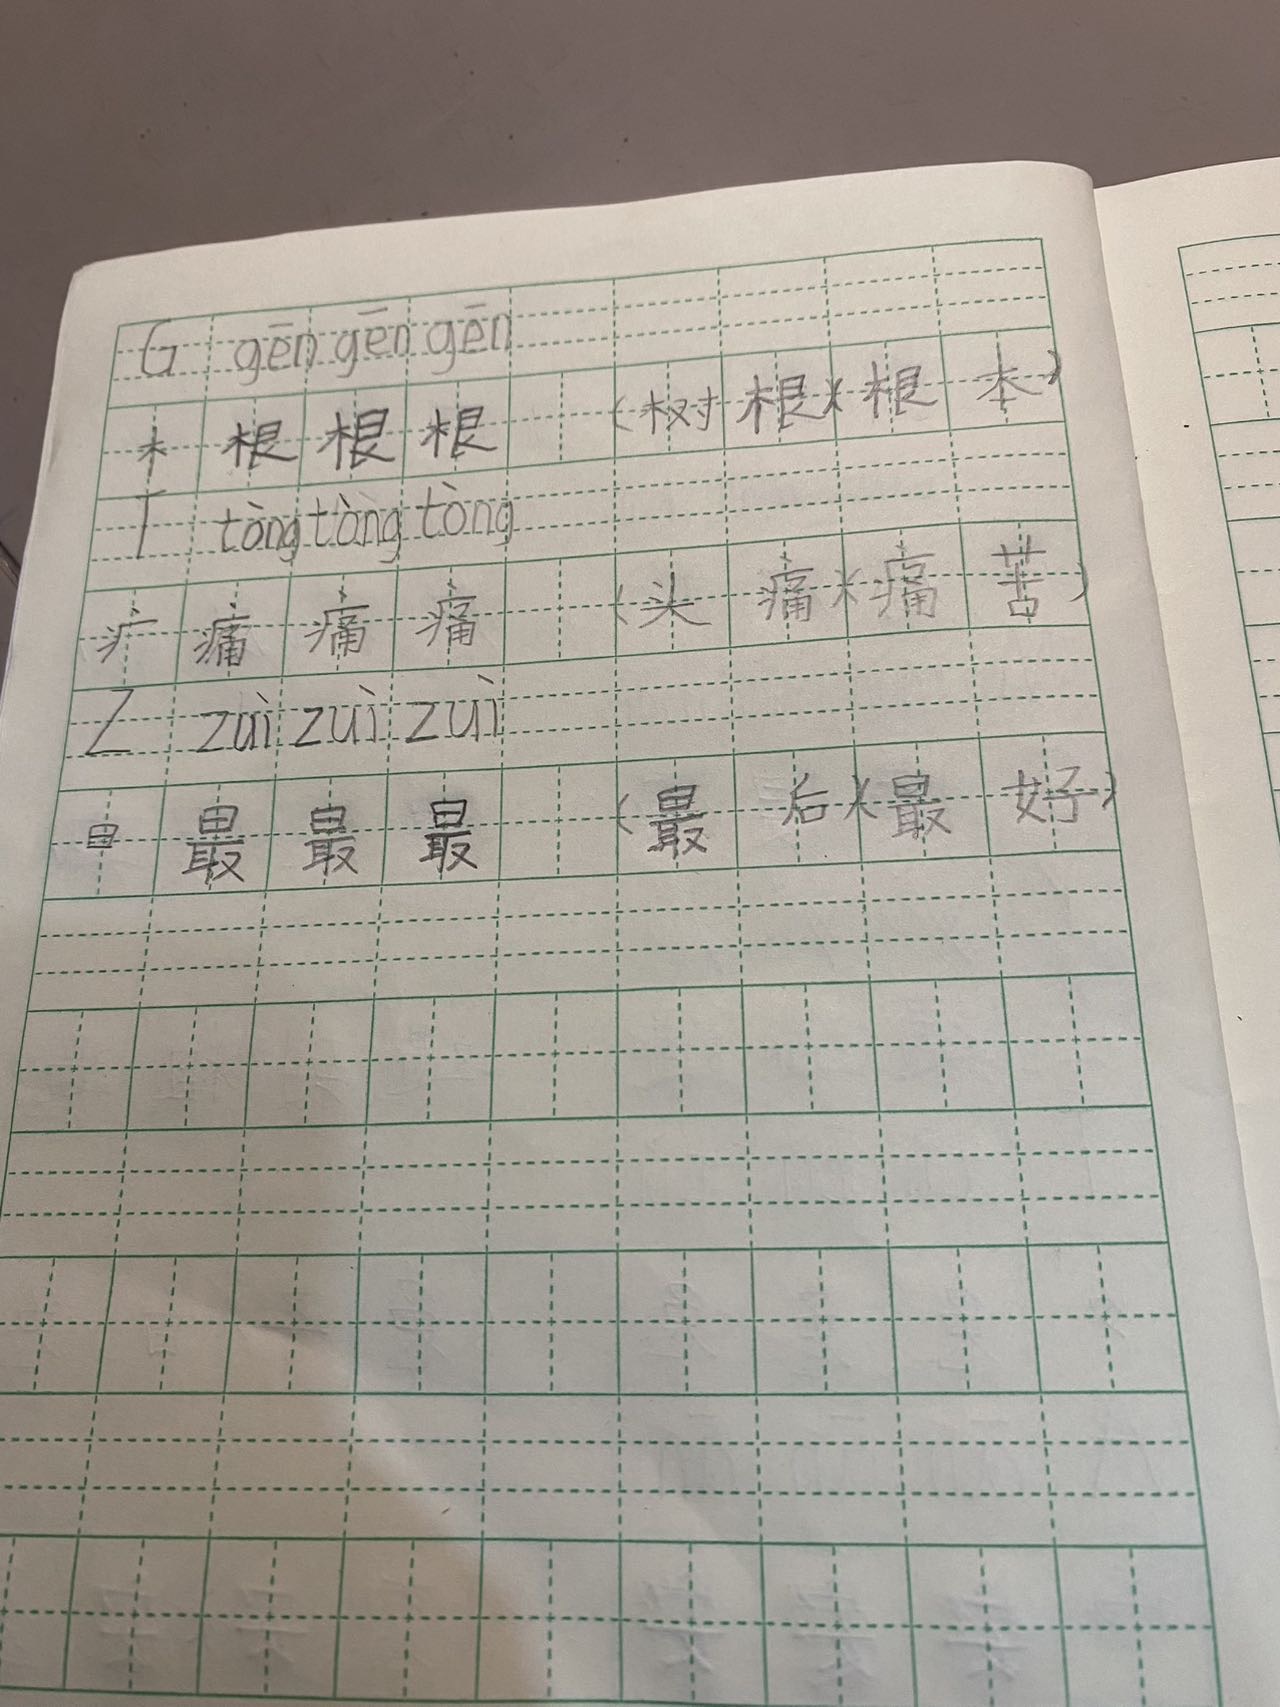 G gēn gēn gēn
木 根 根 根 (树根)(根本)
T tòng tòng tòng
疒 痛 痛 痛 (头痛)(痛苦)
Z zuì zuì zuì
日 最 最 最 (最后)(最好)